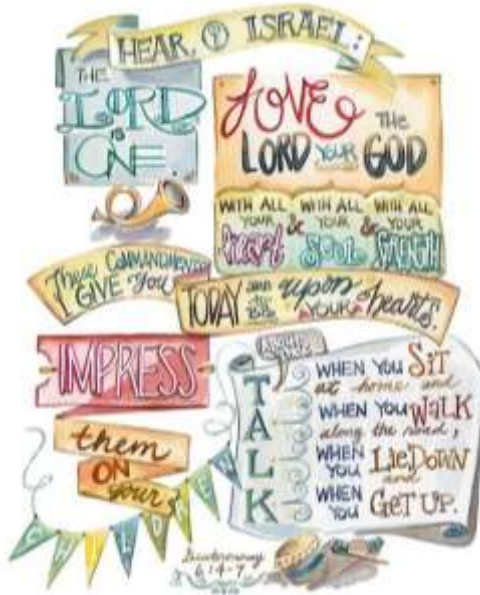 HEAR, O ISRAEL:
THE
LORD
IS
ONE.
LOVE THE
LORD YOUR GOD
WITH ALL YOUR heart & WITH ALL YOUR SOUL & WITH ALL YOUR STRENGTH
These COMMANDMENTS
I GIVE YOU
TODAY are to be upon YOUR hearts.
IMPRESS
them
ON
your
CHILDREN
TALK
ABOUT
WHEN YOU SIT
at home and
WHEN YOU WALK
along the road,
WHEN YOU LIE DOWN
and
WHEN YOU GET UP.
Deuteronomy
6:4-7